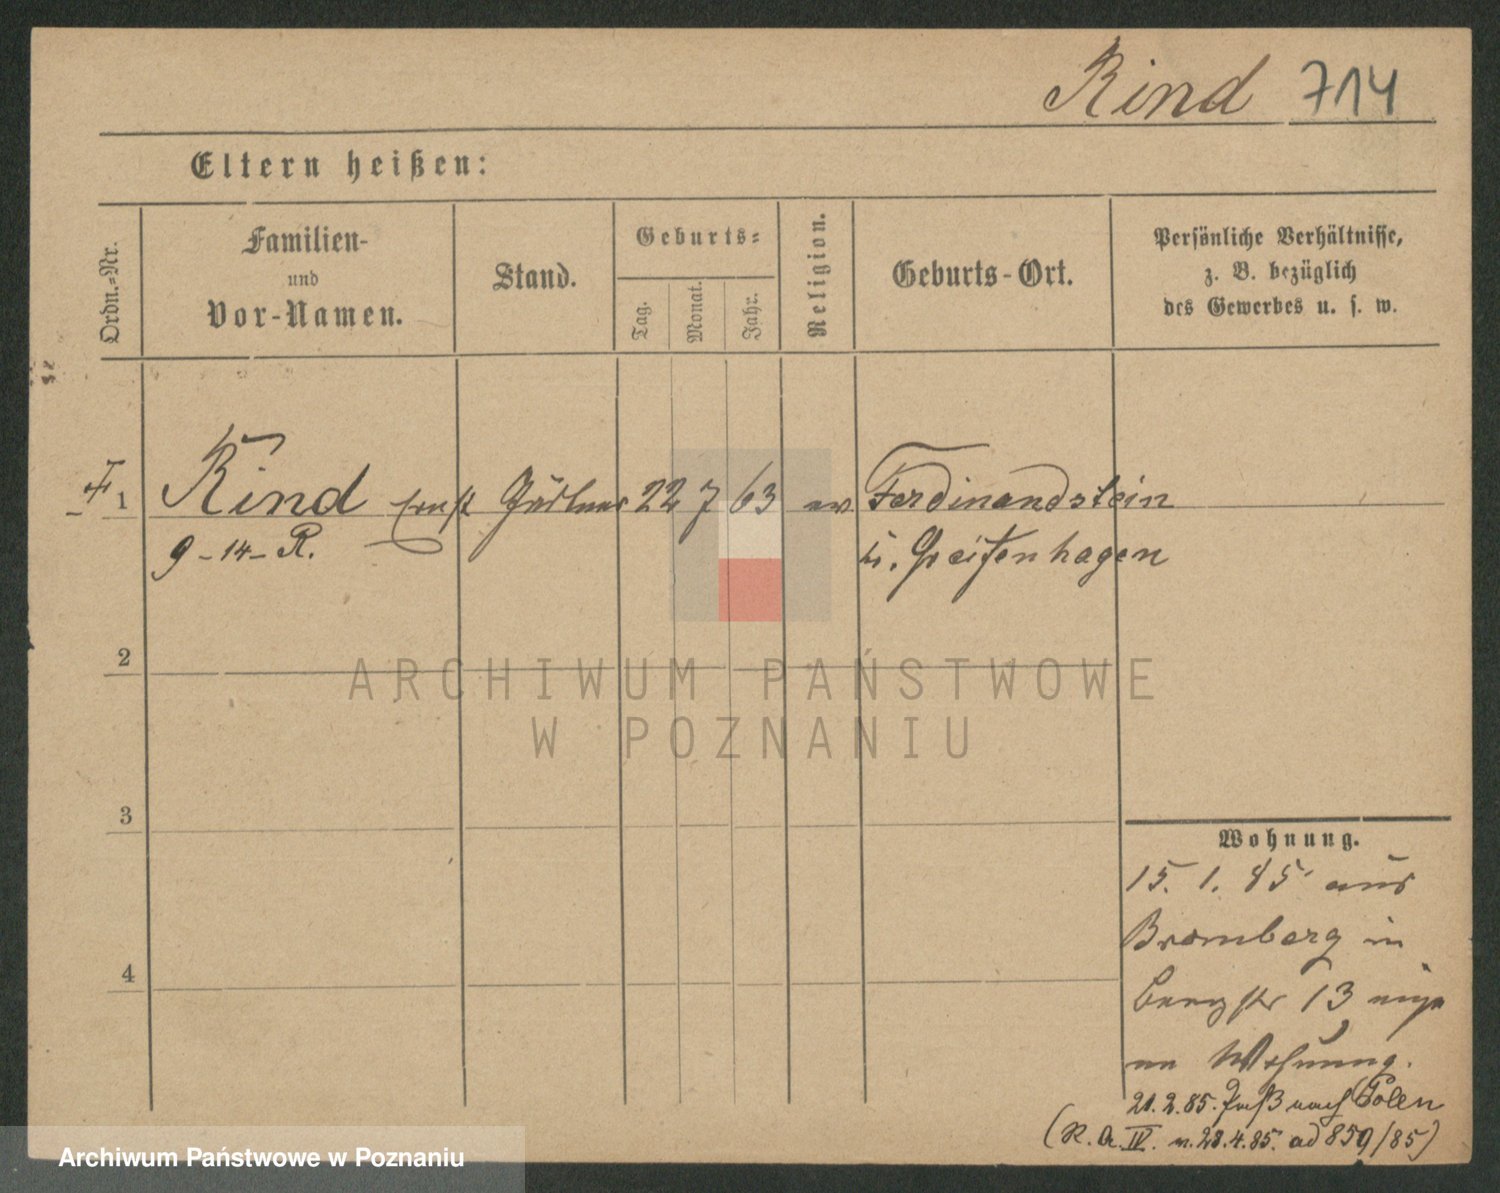 Rind 714
Eltern heißen:
Ordn.=Nr.
Familien-
und
Vor-Namen.
Stand.
Geburts=
Tag.
Monat.
Jahr.
Religion.
Geburts-Ort.
Persönliche Verhältnisse,
z. B. bezüglich
des Gewerbes u. s. w.
1 Rind Ernst Gärtner 22 7 63 ev Ferdinandstein
9-14-R. Greifenhagen
2
3
4
Wohnung.
15. 1. 85 aus
Bromberg in
13
Wohnung.
21. 2. 85. Paß nach Polen
(R. A. IV. v. 28.4.85. ad 859/85)
ARCHIWUM PAŃSTWOWE
W POZNANIU
Archiwum Państwowe w Poznaniu